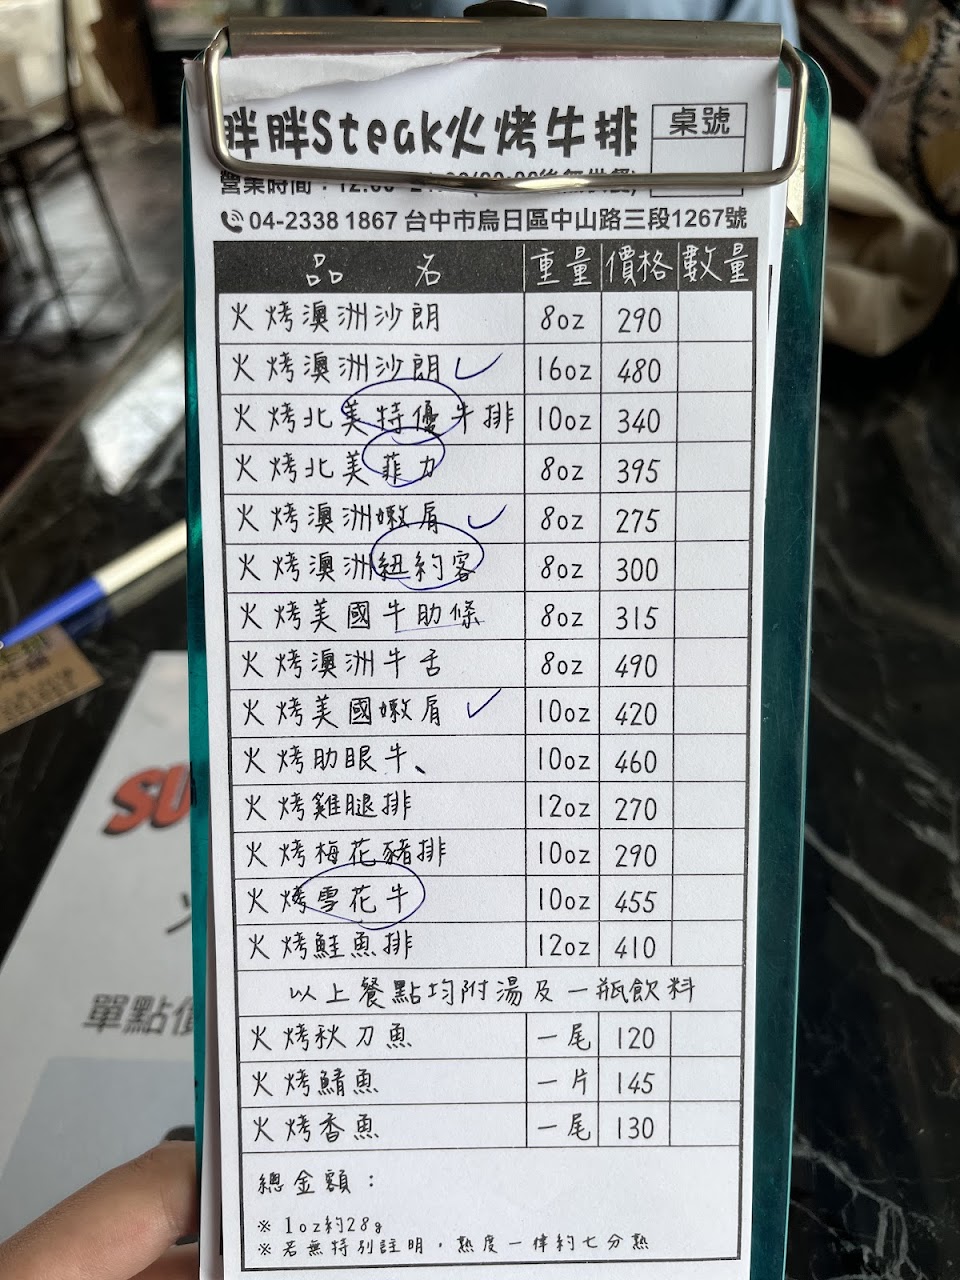 胖胖Steak火烤牛排
桌號
營業時間：
04-2338 1867 台中市烏日區中山路三段1267號
品名 重量 價格 數量
火烤澳洲沙朗 8oz 290
火烤澳洲沙朗 16oz 480
火烤北美特優牛排 10oz 340
火烤北美菲力 8oz 395
火烤澳洲嫩肩 8oz 275
火烤澳洲紐約客 8oz 300
火烤美國牛肋條 8oz 315
火烤澳洲牛舌 8oz 490
火烤美國嫩肩 10oz 420
火烤肋眼牛、 10oz 460
火烤雞腿排 12oz 270
火烤梅花豬排 10oz 290
火烤雪花牛 10oz 455
火烤鮭魚排 12oz 410
以上餐點均附湯及一瓶飲料
火烤秋刀魚 一尾 120
火烤鯖魚 一片 145
火烤香魚 一尾 130
總金額：
※1oz約28g
※若無特別註明，熟度一律約七分熟
SU
單點價